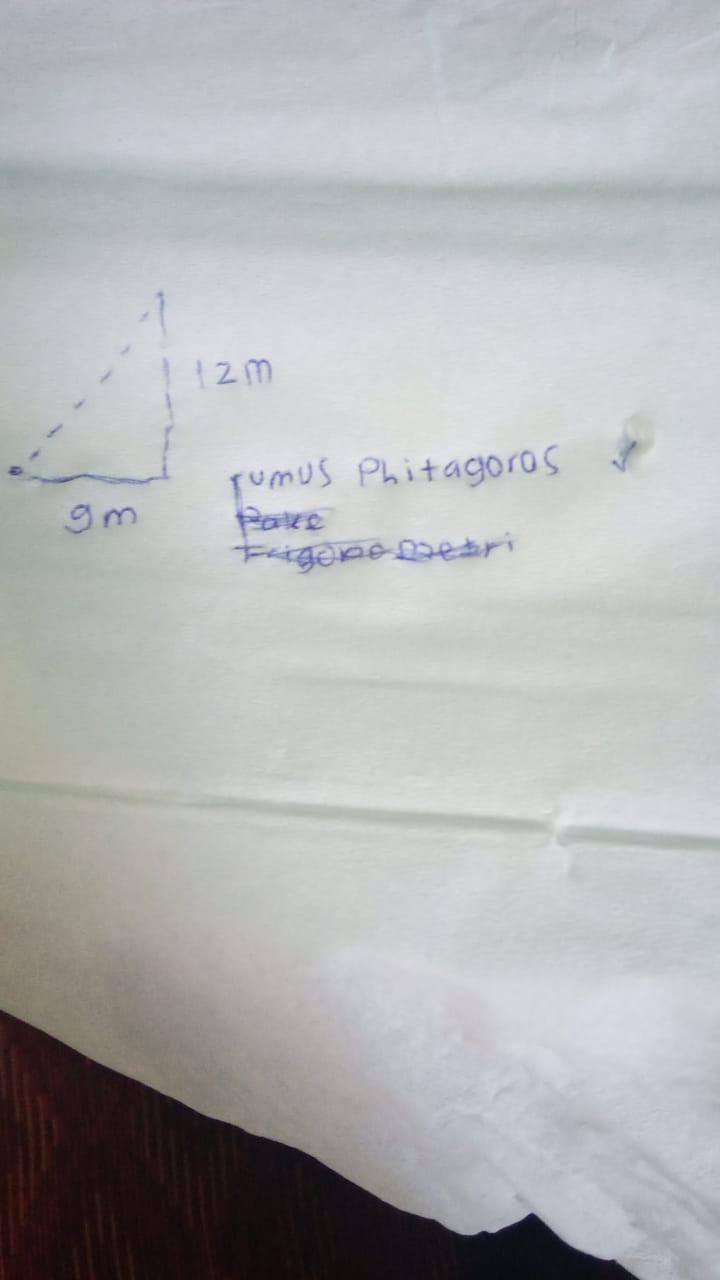 12m
9m
rumus Phitagoras
Pake
Trigonometri